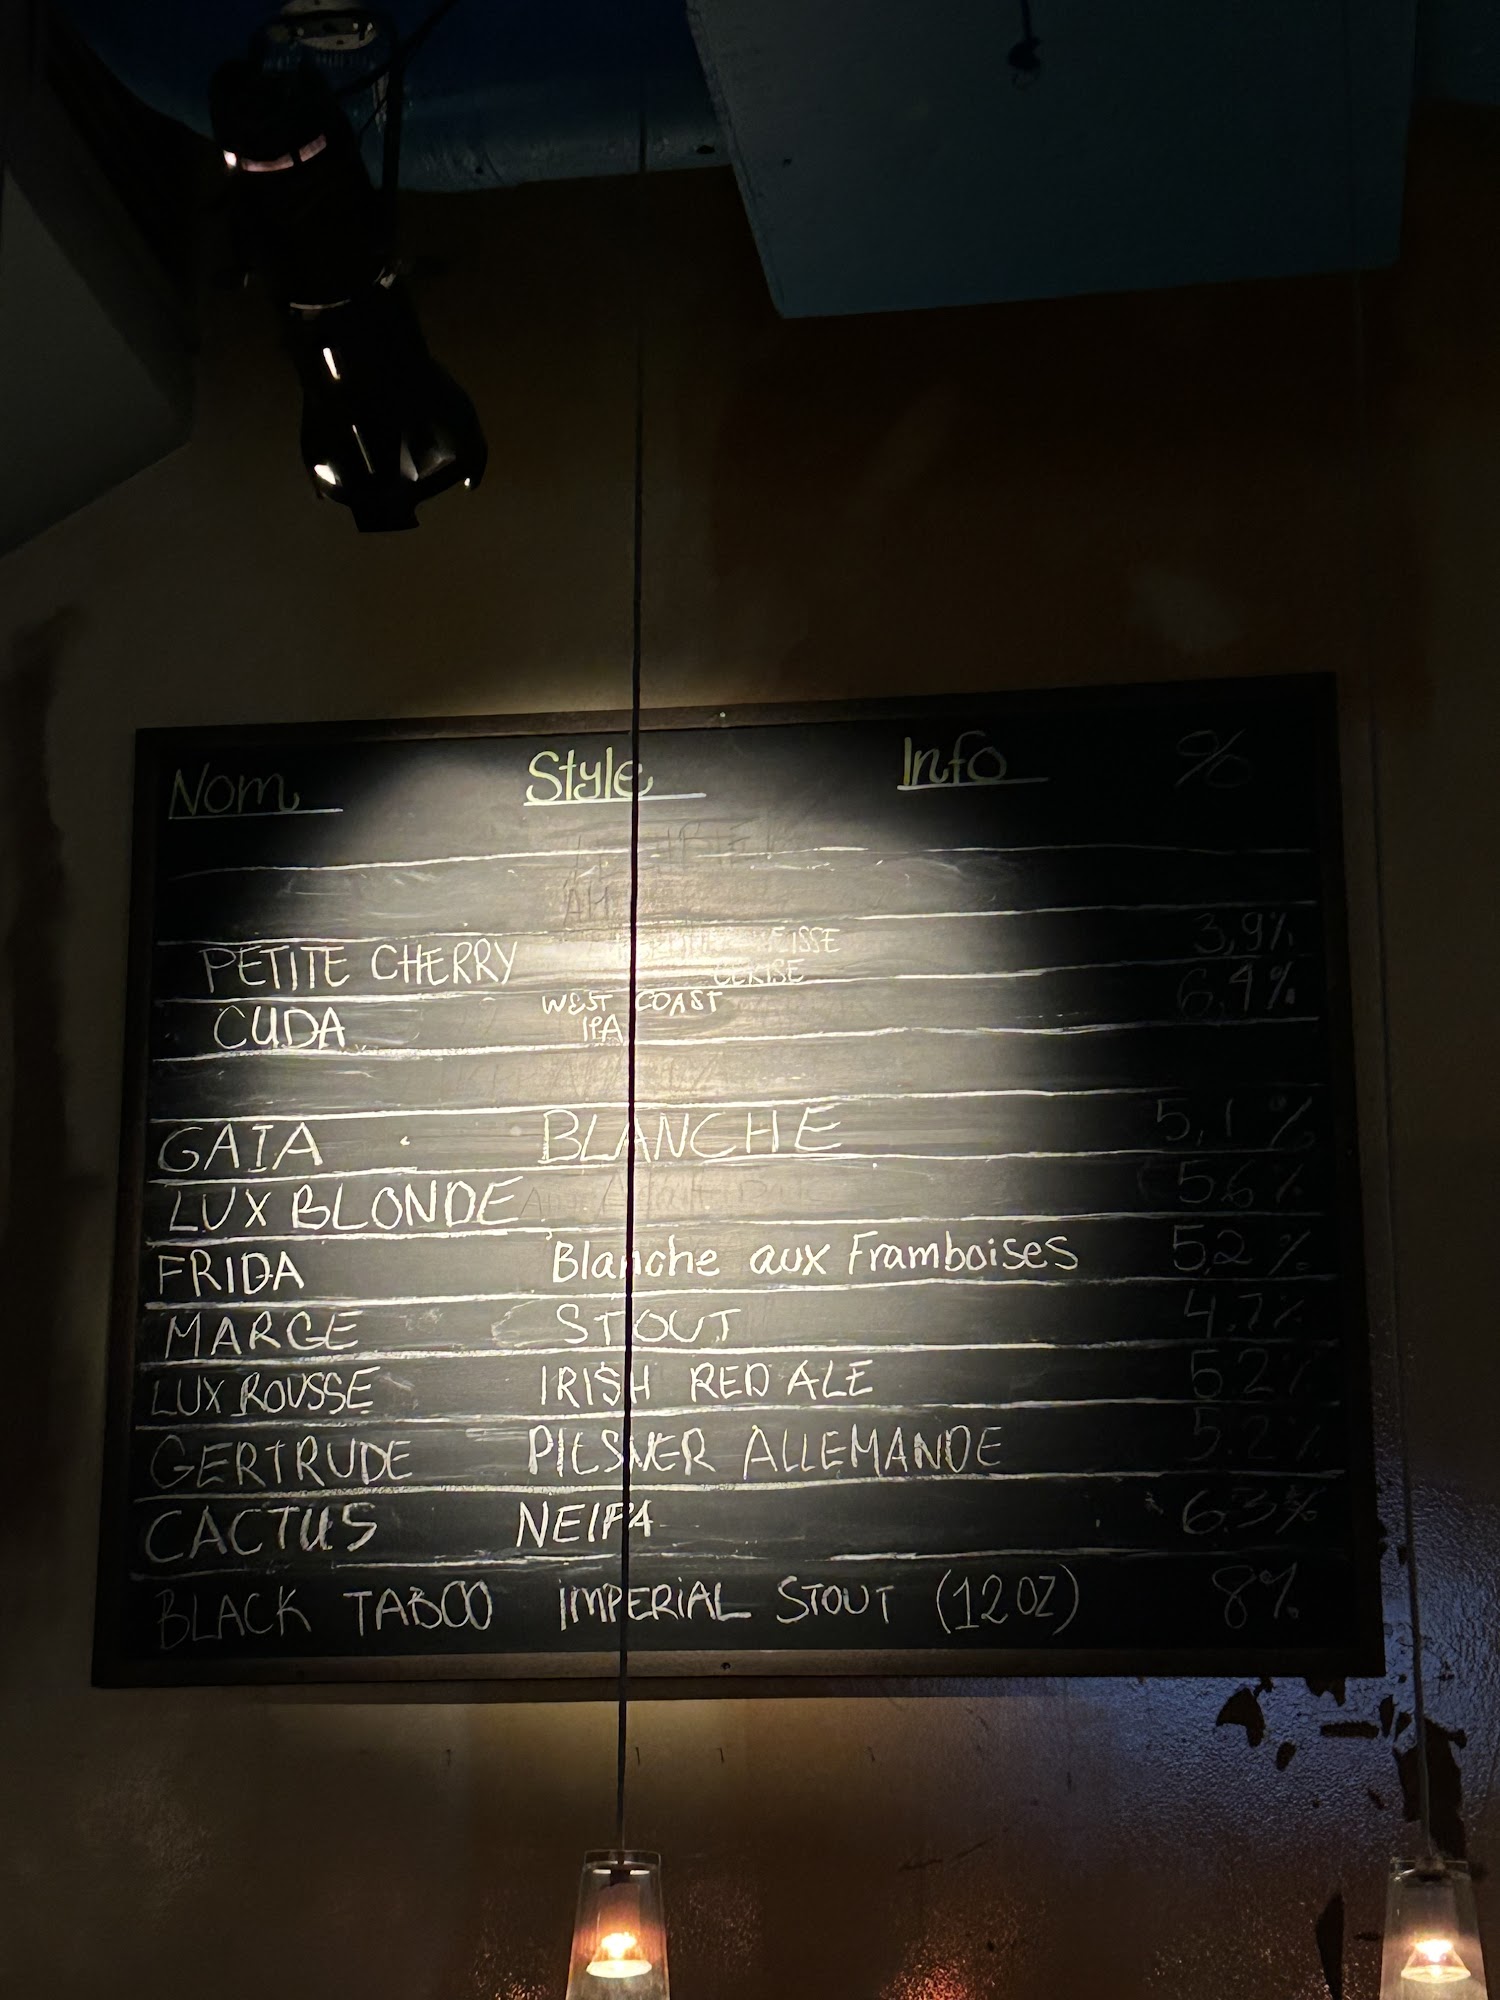 Nom Style Info %
PETITE CHERRY CERISE 3,9%
CUDA WEST COAST IPA 6,4%
GAIA BLANCHE 5,1%
LUX BLONDE 5.6%
FRIDA Blanche aux Framboises 5,2%
MARGE STOUT 4.7%
LUX ROUSSE IRISH RED ALE 5.2%
GERTRUDE PILSNER ALLEMANDE 5.2%
CACTUS NEIPA 6.3%
BLACK TABOO IMPERIAL STOUT (12 OZ) 8%